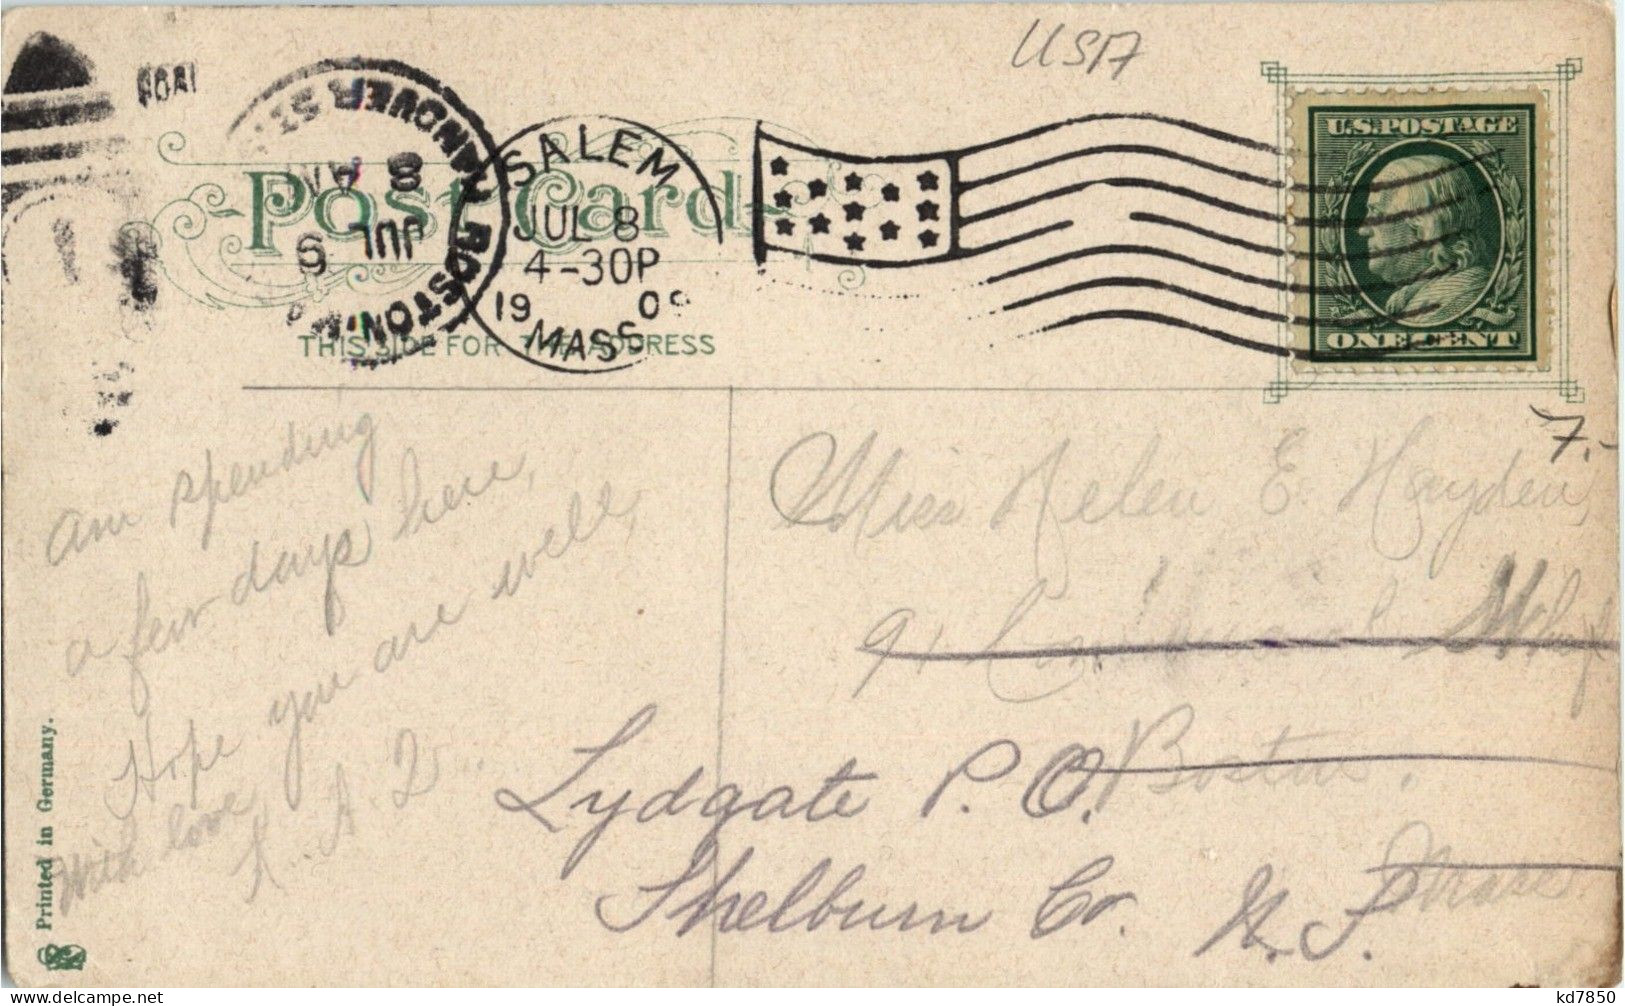 USA
HANOVER ST.
8 AM
JUL 9
BOSTON, M
SALEM
JUL 8
4-30P
19 09
MASS
Post Card
THIS SIDE FOR THE ADDRESS
U.S. POSTAGE
ONE CENT
7.-
Am spending
a few days here,
Hope you are well,
With love
Miss Helen E. Hayden,
91
Boston.
Mass
Lydgate P. O.
Shelburn Co. N. S.
Printed in Germany.
delcampe.net
kd7850